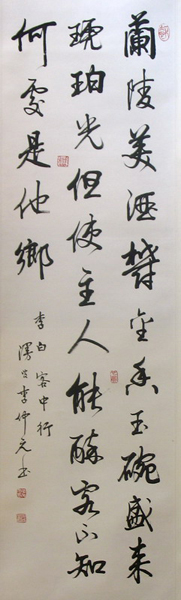 蘭陵美酒鬱金香玉碗盛来
琥珀光但使主人能醉客不知
何處是他鄉
李白客中行
李仲元书